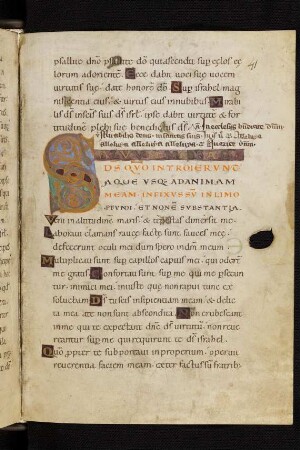 psallite dno psallite do qui ascendit sup celos ce
lorum ad oriente. Ecce dabit voci sue vocem
virtutis sup. date honore do Sup israhel mag
nificentia eius & virtus eius in nubibus Mirabi
lis ds in scis suis ds isrl. ipse dabit virtute & for
titudine plebi sue benedictus ds.
alleluia alleluia alleluia
DS QUO INTROIERUNT
AQUE USQ AD ANIMAM
MEAM INFIXUS SU IN LIMO
PFUNDI, ET NON E SUBSTANTIA.
Veni in altitudine maris & tepestas dimersit me
Laboraui clamans rauce facte sunt fauces mee
defecerunt oculi mei dum spero indm meum
Multiplicati sunt sup capillos capitis mei qui oder
me gratis Confortati sunt sup me qui me psecun
tur inimici mei iniuste que non rapui tunc ex
soluebam Ds tu scis insipientiam meam & delicta
mea a te non sunt abscondita Non erubescant
in me qui te expectant dne ds virtutu non reue
reantur sup me qui requirunt te ds israhel.
Quo propter te sustinui improperium operuit
reuerentia faciem meam exter factus su fratrib